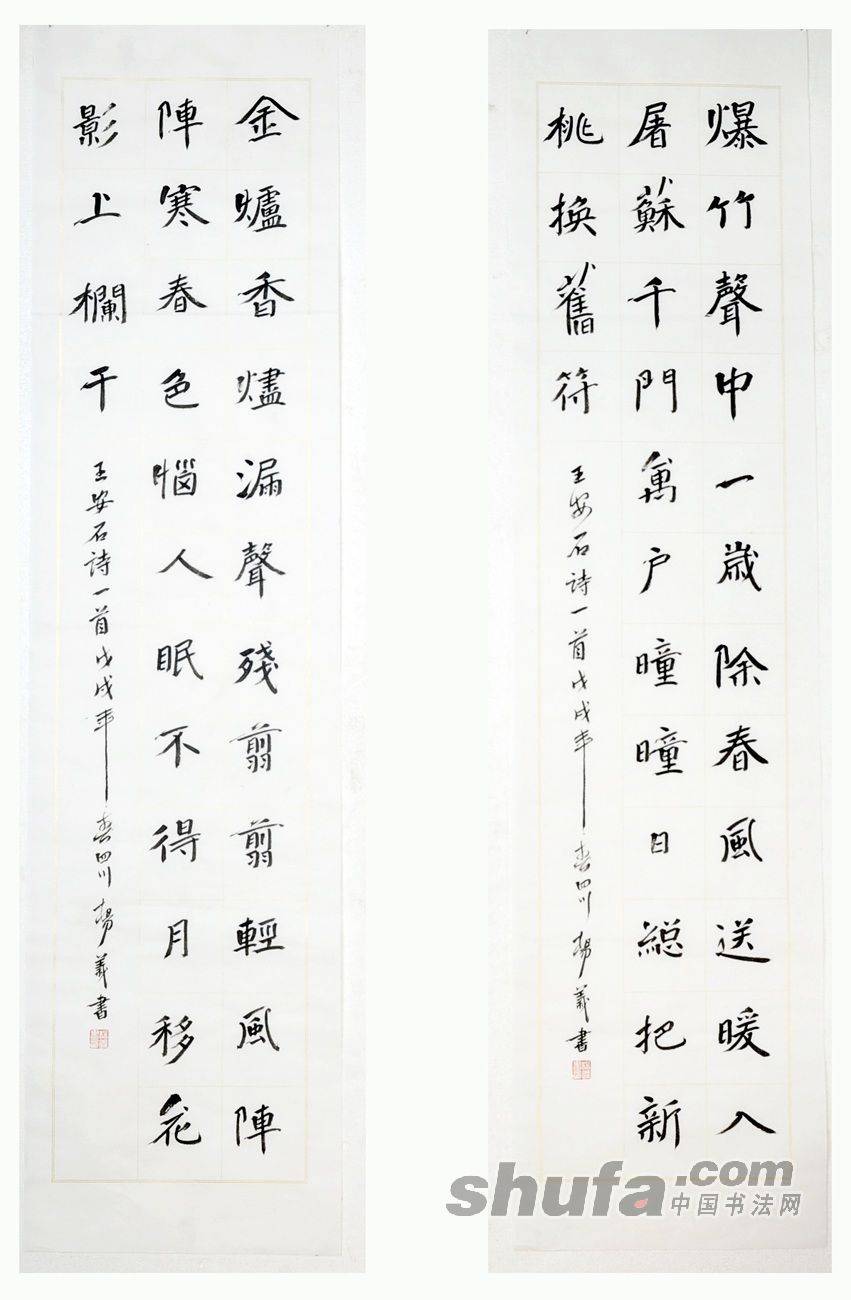 爆竹聲中一歲除春風送暖入
屠蘇千門萬户曈曈日總把新
桃換舊符
王安石詩一首戊戌年春四川楊義書
金爐香燼漏聲殘翦翦輕風陣
陣寒春色惱人眠不得月移花
影上欄干
王安石詩一首戊戌年春四川楊義書
shufa.com
中国书法网